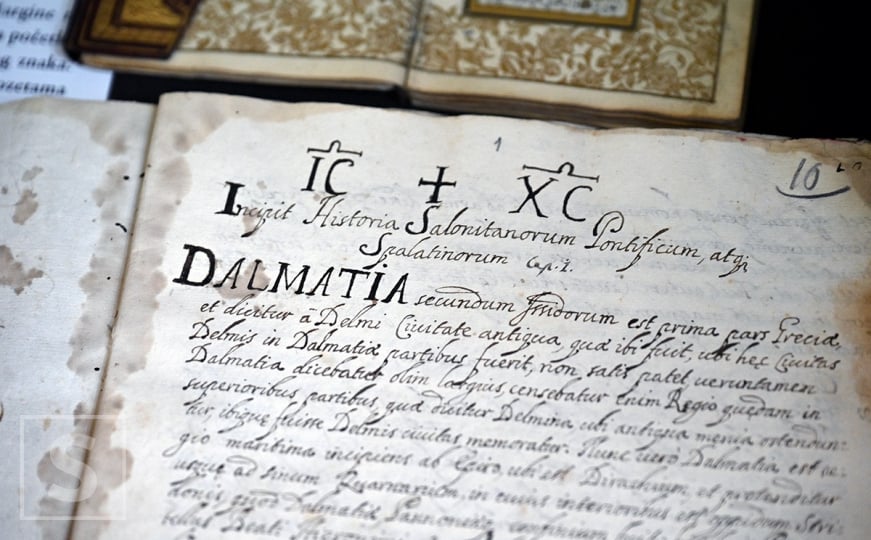 largine
počesk
g znaka.
ozetama
1
10
IC + XC
Incipit Historia Salonitanorum Pontificum, atqȝ
Spalatinorum Cap. I.
DALMATIA secundum Jsidorum est prima pars Greciæ,
et dicitur à Delmi Ciuitate antiqua, quæ ibi fuit, ubi hec Ciuitas
Delmis in Dalmatiæ partibus fuerit, non satis patet, ueruntamen
Dalmatia dicebatur olim largius, censebatur enim Regio quędam in
superioribus partibus, quæ dicitur Delmina, ubi antiqua menia ostendun:
tur, ibique fuisse Delmis ciuitas memoratur. Nunc uero Dalmatia est re:
gio maritima incipiens ab Epiro, ubi est Dirachium, et protenditur
usque ad sinum Quarnarium, in cuius interioribus est oppidum Stri:
donis quod Dalmatiæ Pannoniæque confinium
tellus Beati
S